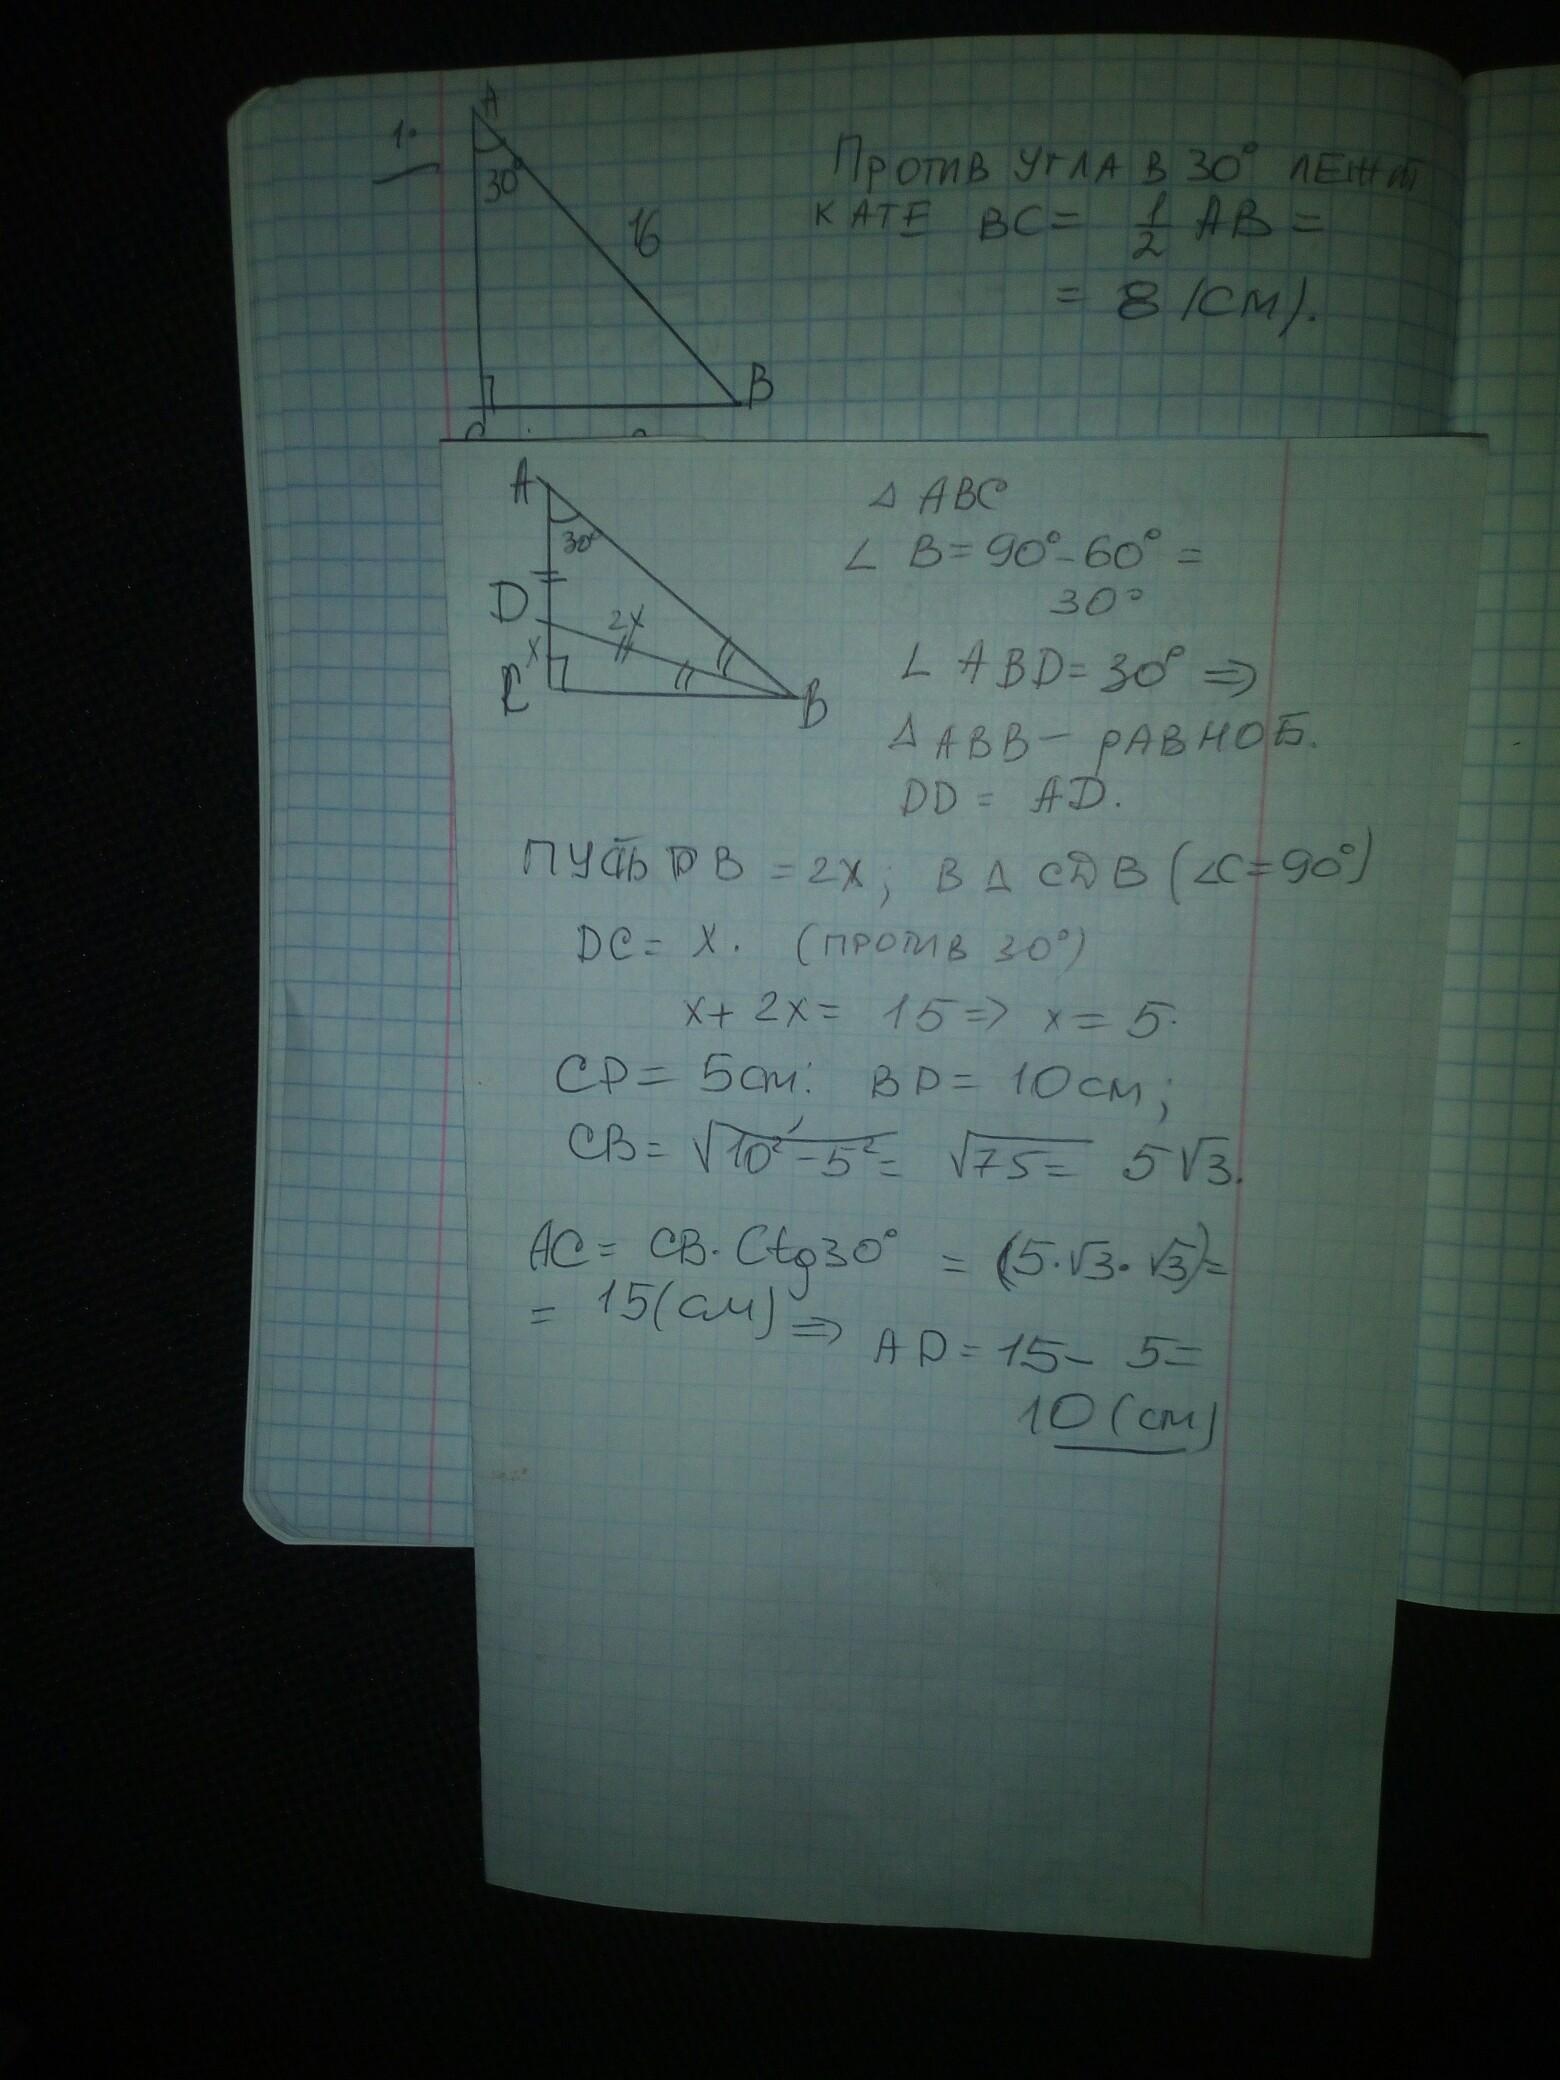 1.
A
30°
16
B
Против угла в 30° лежит
кате BC = 1/2 AB =
= 8 (см).
A
30°
D
2x
x
B
△ ABC
∠ B = 90° - 60° =
30°
∠ ABD = 30° ⇒
△ ABB - равноб.
DD = AD.
Пусть DB = 2x; в △ CDB (∠C = 90°)
DC = x. (против 30°)
x + 2x = 15 ⇒ x = 5.
CD = 5 см; BD = 10 см;
CB = √10² - 5² = √75 = 5√3.
AC = CB · Ctg 30° = (5·√3·√3) =
= 15 (см) ⇒ AD = 15 - 5 =
10 (см)